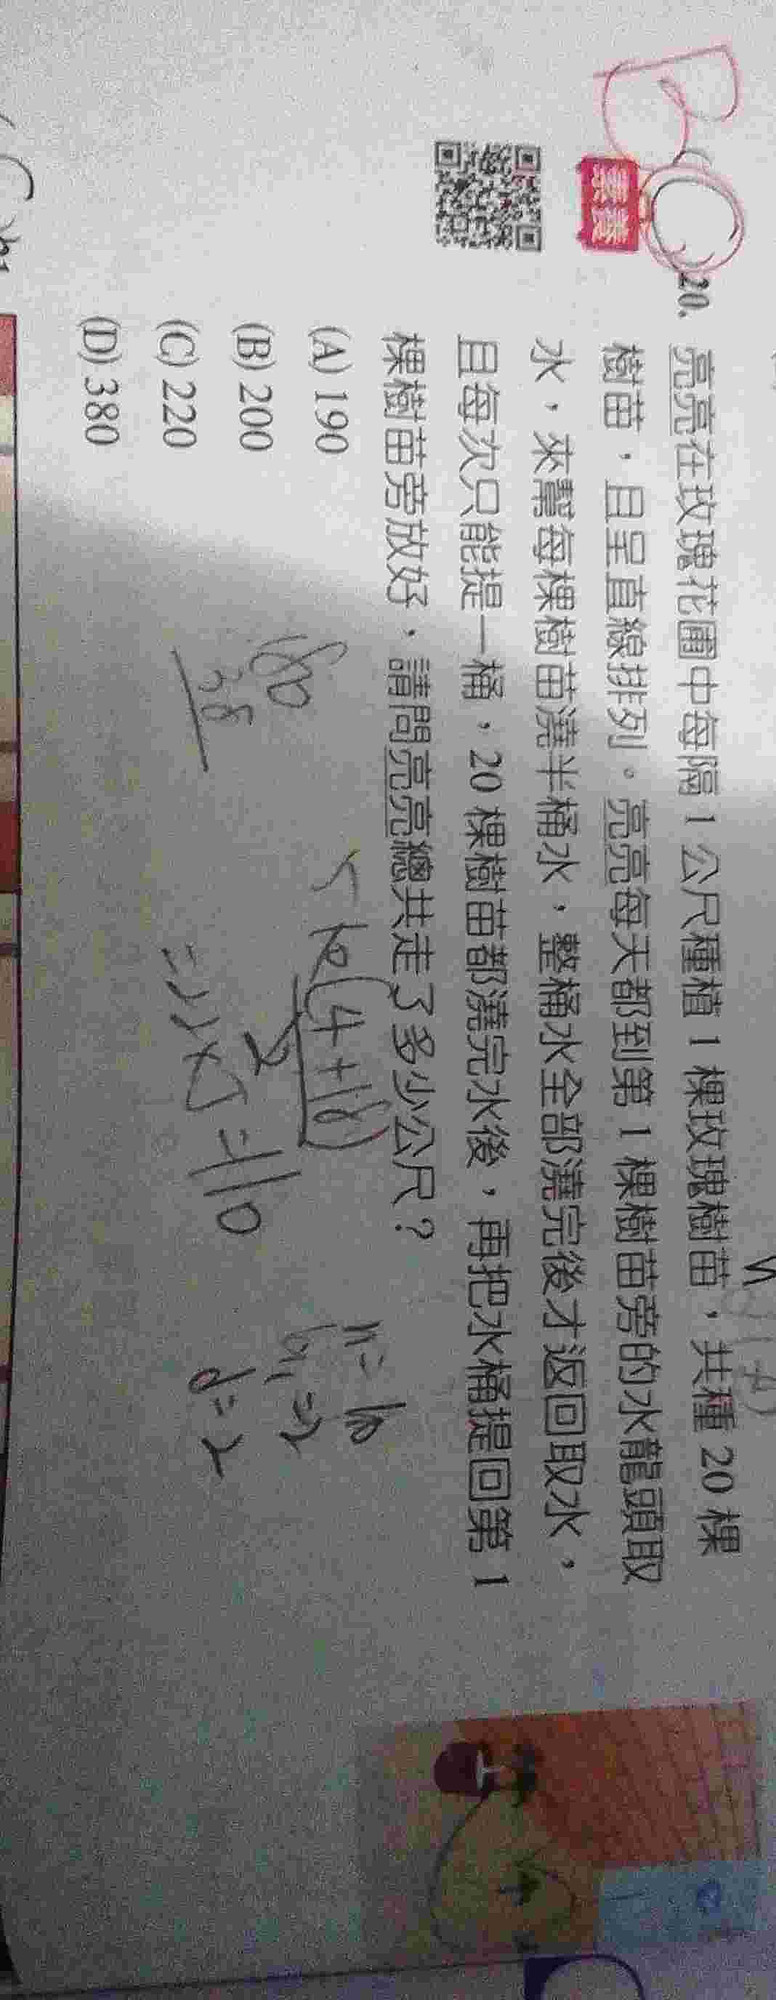 20. 亮亮在玫瑰花圃中每隔 1 公尺種植 1 棵玫瑰樹苗，共種 20 棵
樹苗，且呈直線排列。亮亮每天都到第 1 棵樹苗旁的水龍頭取
水，來幫每棵樹苗澆半桶水，整桶水全部澆完後才返回取水，
且每次只能提一桶，20 棵樹苗都澆完水後，再把水桶提回第 1
棵樹苗旁放好，請問亮亮總共走了多少公尺？
素養
(A) 190
(B) 200
(C) 220
(D) 380
n = 10
d = 2